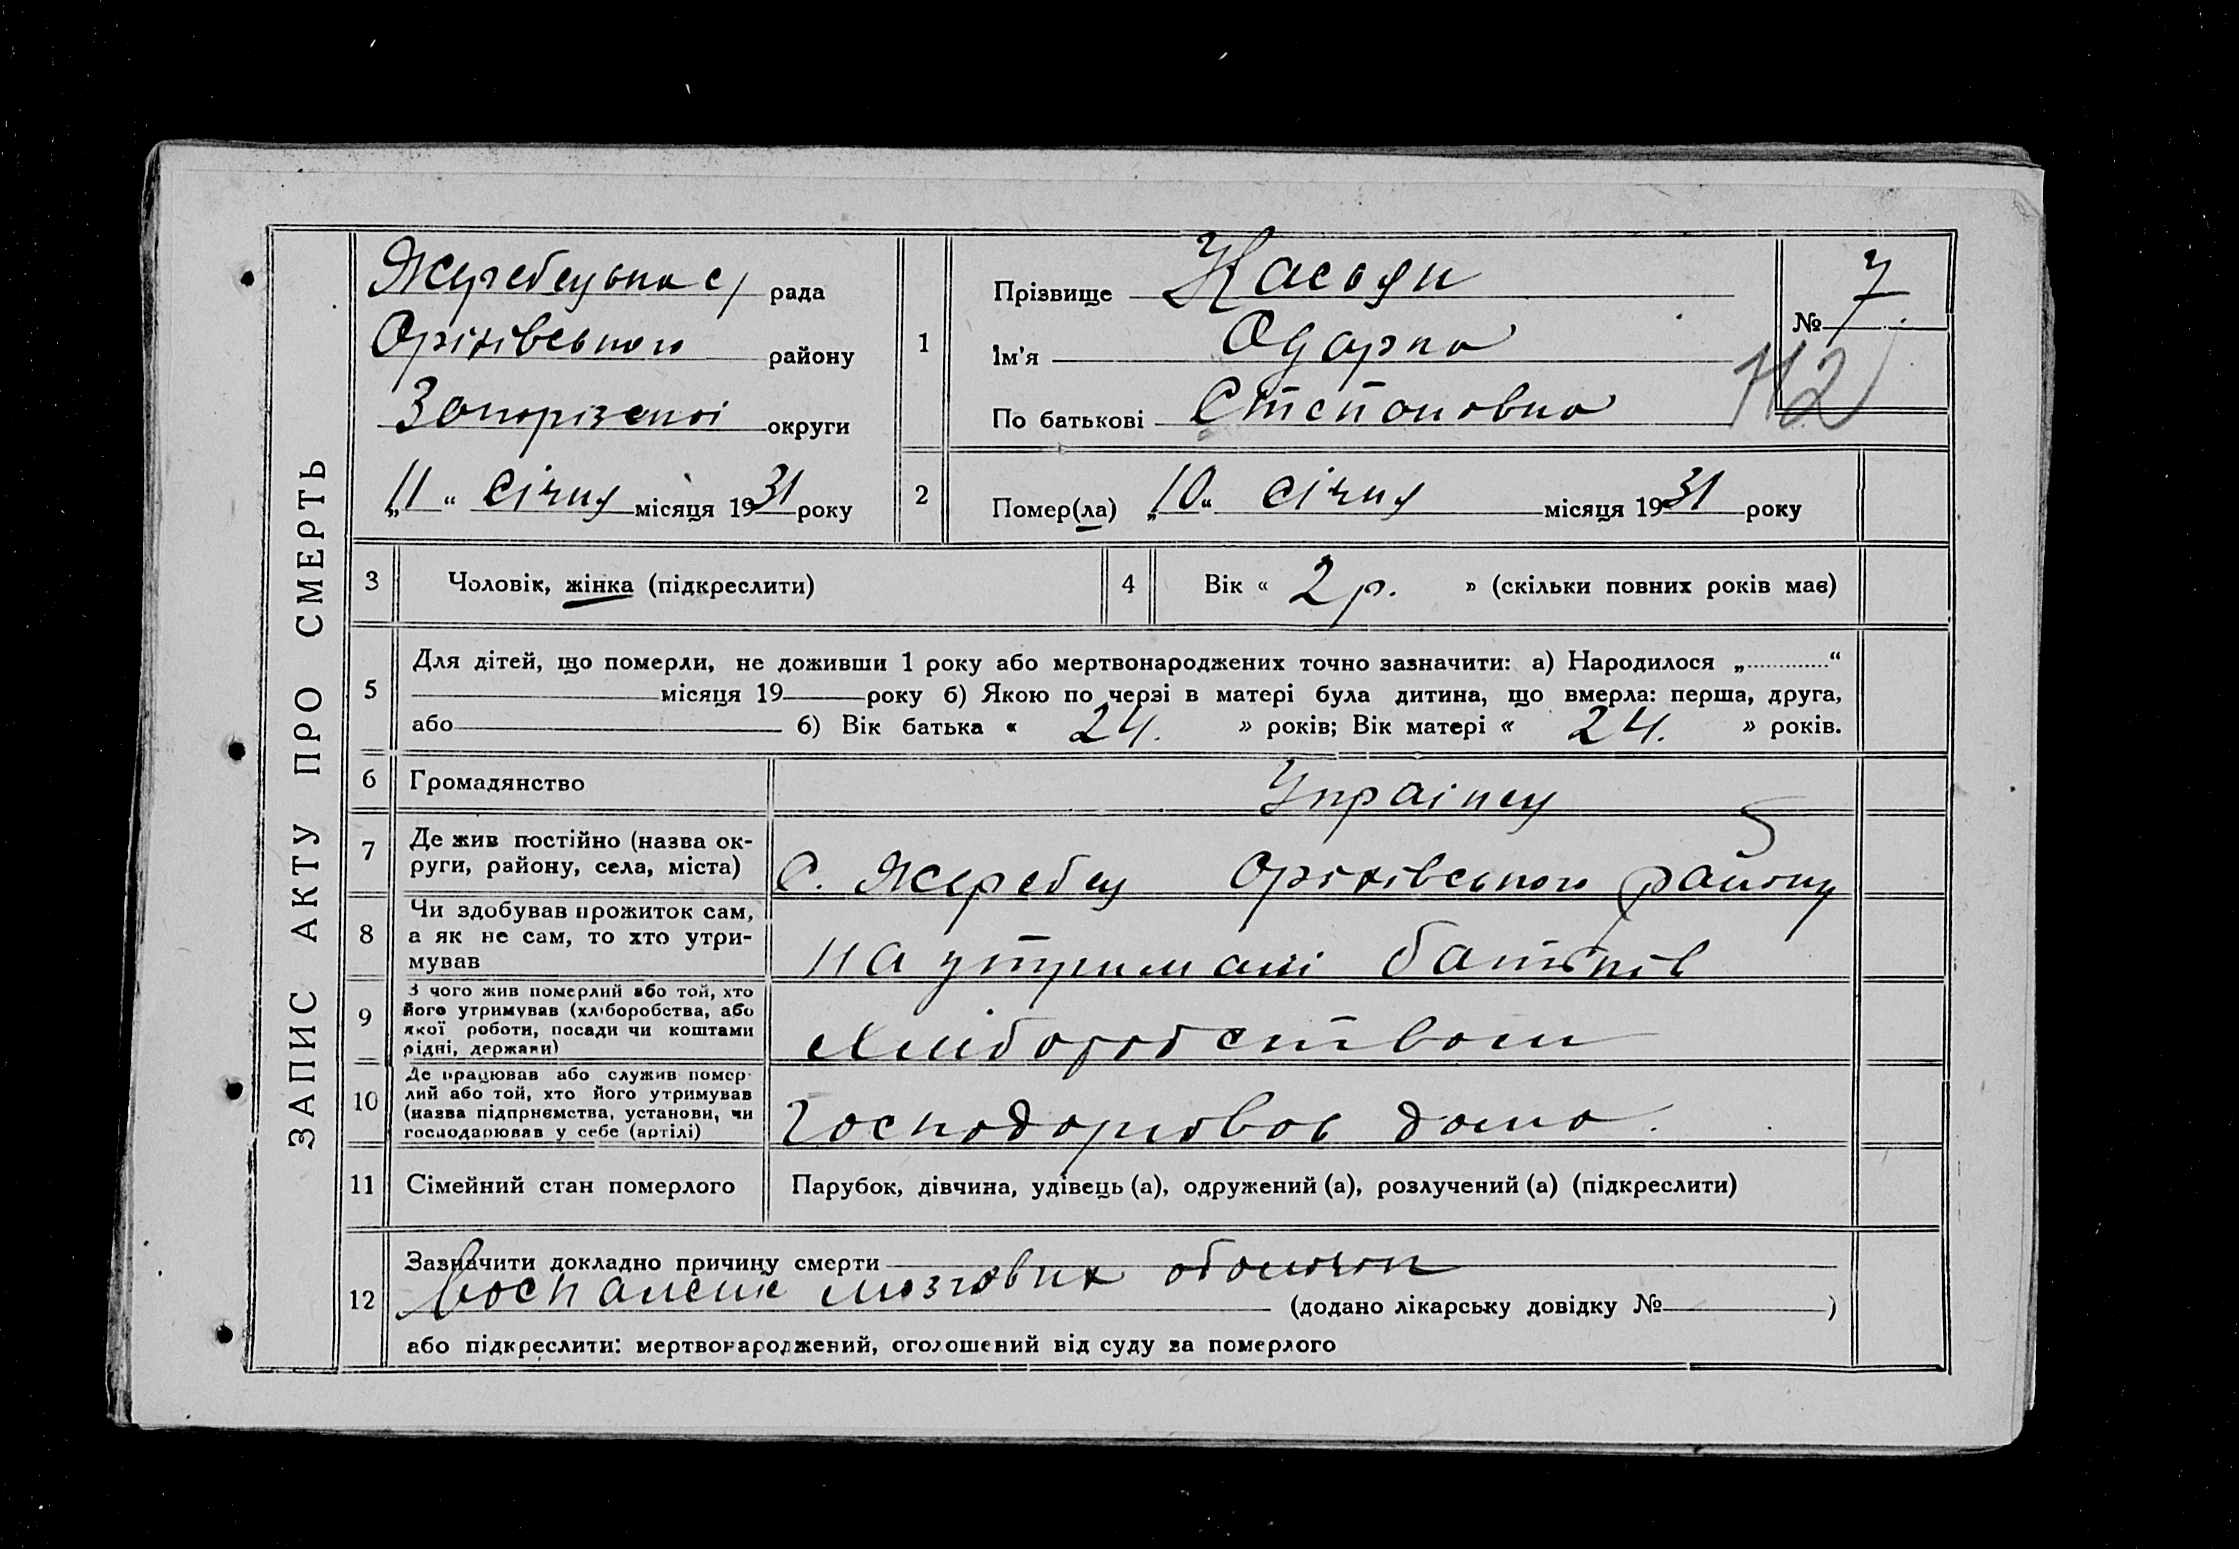 ЗАПИС АКТУ ПРО СМЕРТЬ
Жеребецька с/ рада
Оріхівського району
Запорізької округи
„11“ січня місяця 1931 року
1
Прізвище
Ім'я Одарка
По батькові Степановна
№ 7
112
2
Помер(ла) „10“ січня місяця 1931 року
3 Чоловік, жінка (підкреслити)
4 Вік « 2 р. » (скільки повних років має)
5
Для дітей, що померли, не доживши 1 року або мертвонароджених точно зазначити: а) Народилося „.............“
місяця 19 року б) Якою по черзі в матері була дитина, що вмерла: перша, друга,
або б) Вік батька « 24. » років; Вік матері « 24. » років.
6 Громадянство Українц
7
Де жив постійно (назва ок-
руги, району, села, міста)
С. Жеребец Оріхівського району
8
Чи здобував прожиток сам,
а як не сам, то хто утри-
мував
на утримані батьків
9
З чого жив померлий або той, хто
його утримував (хліборобства, або
якої роботи, посади чи коштами
рідні, держави)
хліборобством
10
Де працював або служив помер-
лий або той, хто його утримував
(назва підприємства, установи, чи
господарював у себе (артілі)
Господорював дома.
11 Сімейний стан померлого
Парубок, дівчина, удівець (а), одружений (а), розлучений (а) (підкреслити)
12
Зазначити докладно причину смерти
Воспаление мозгових оболочок
(додано лікарську довідку № )
або підкреслити: мертвонароджений, оголошений від суду за померлого